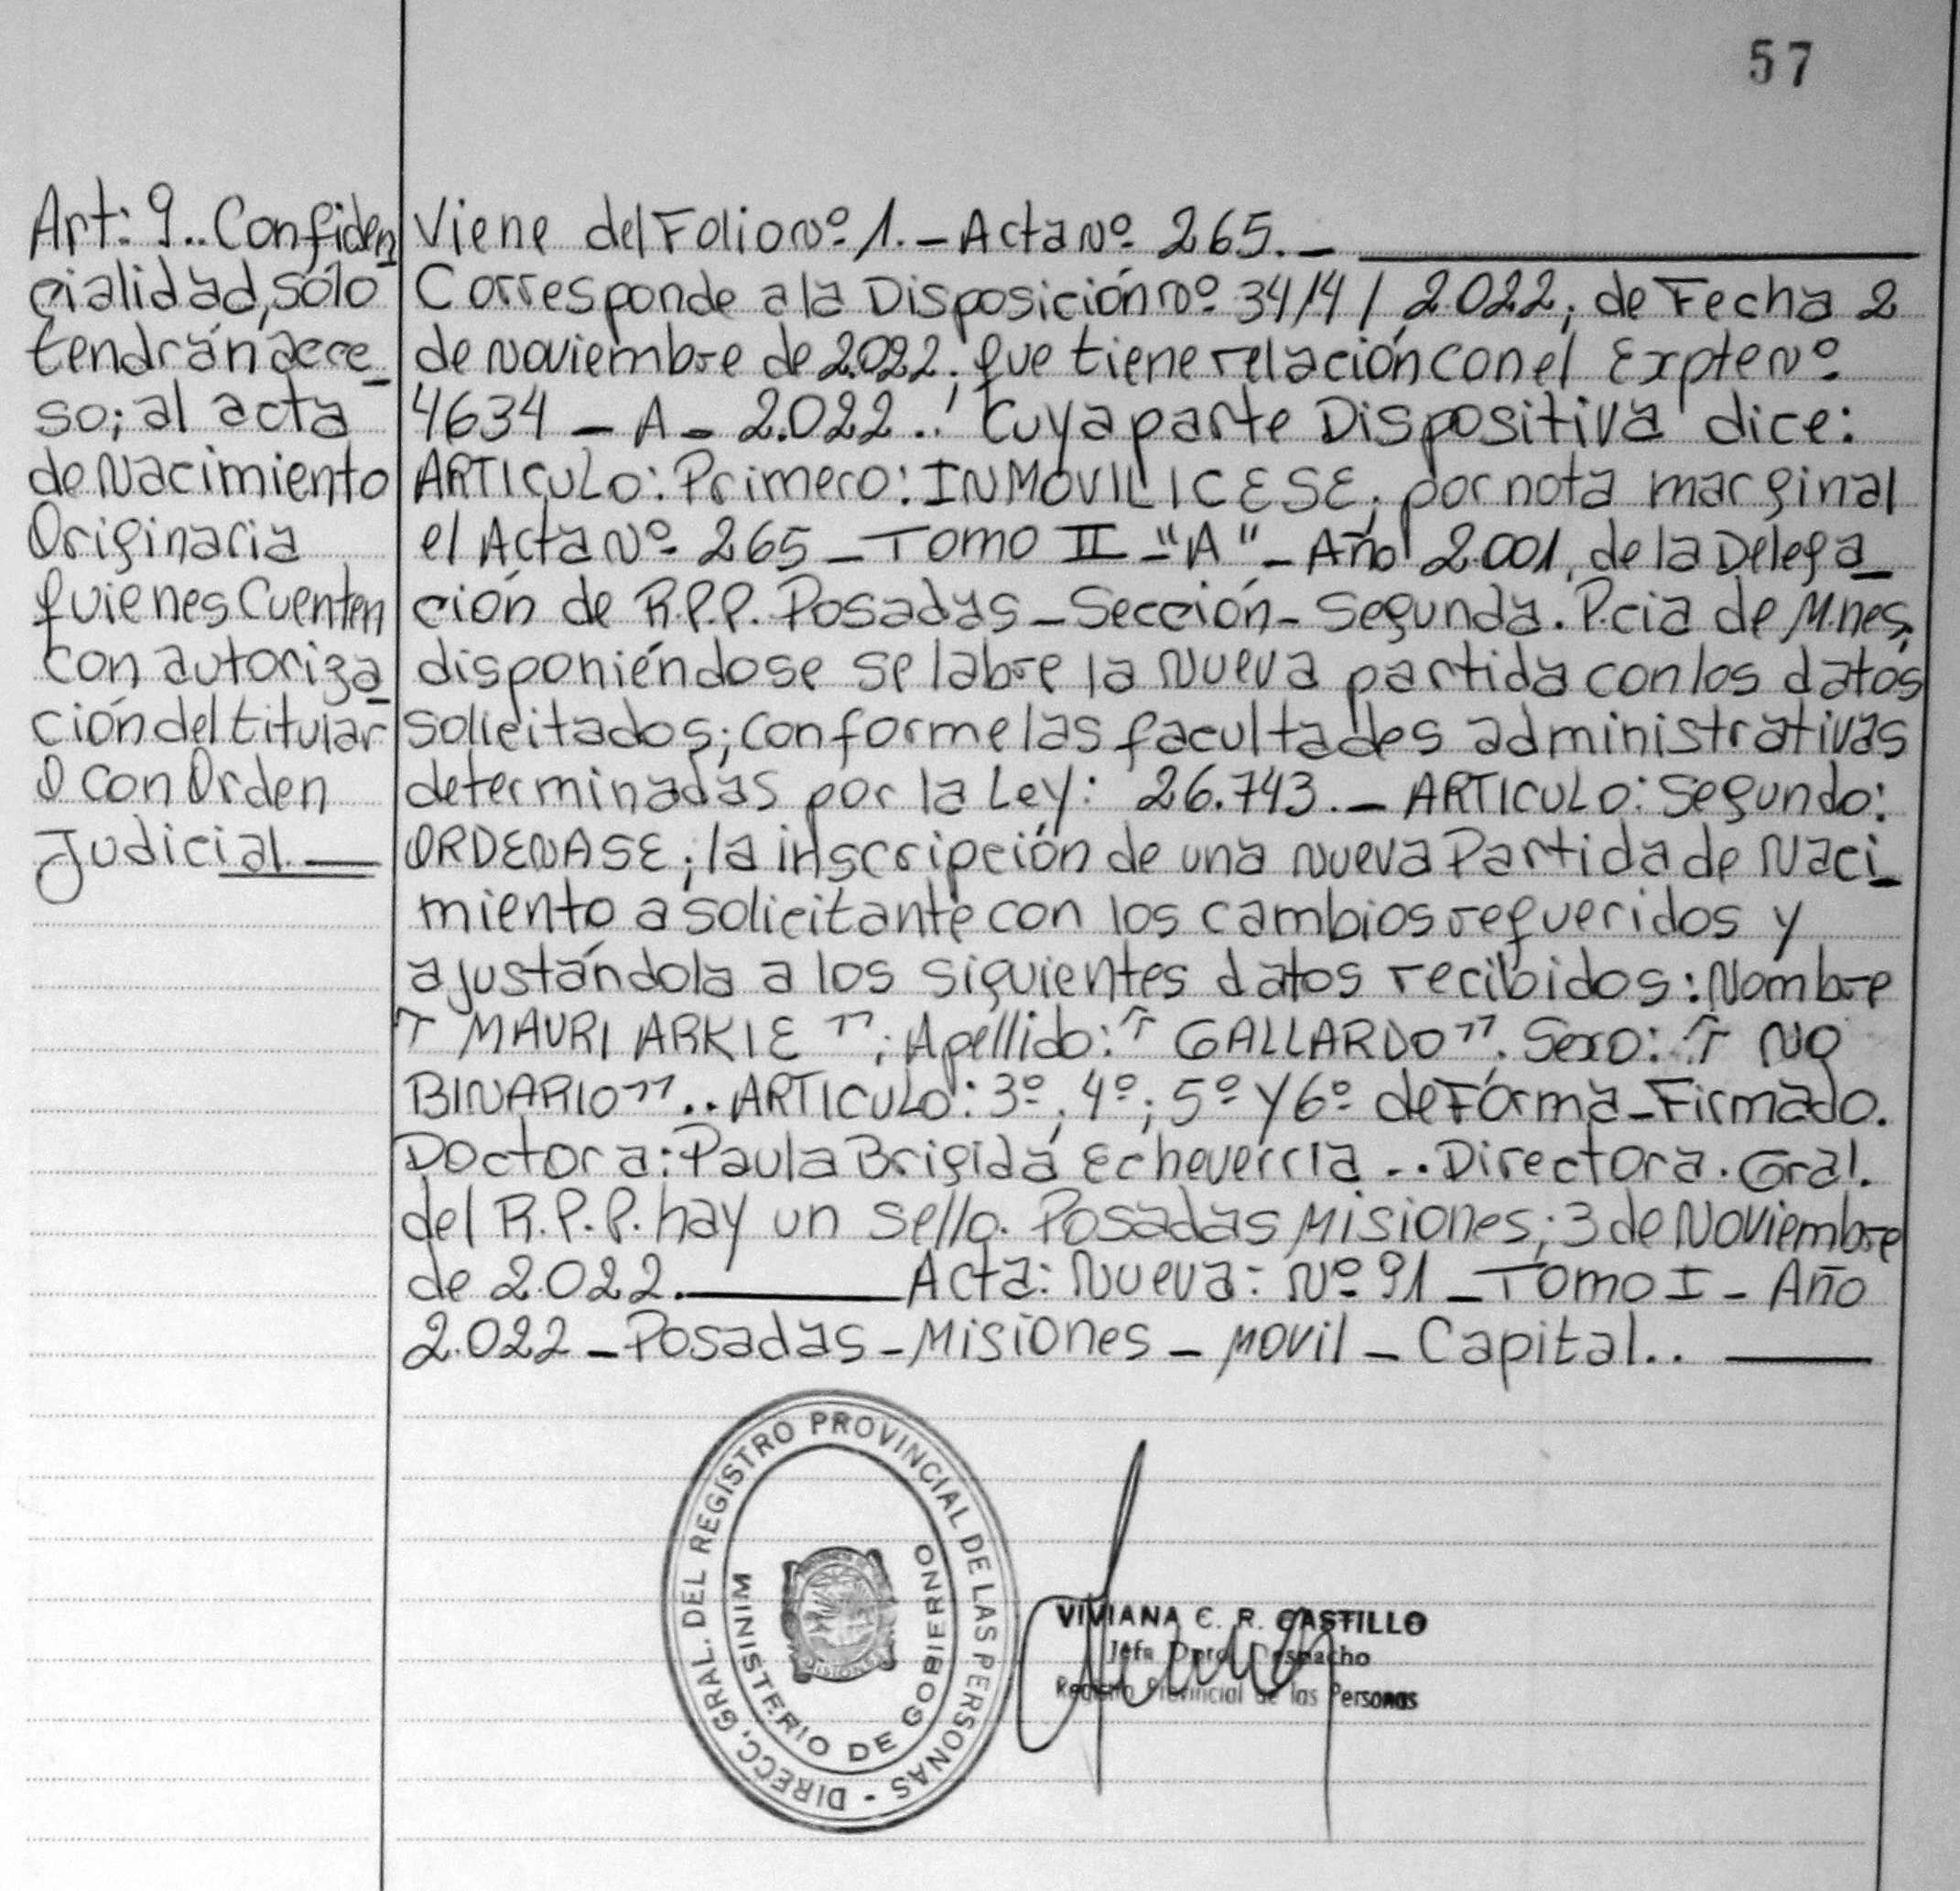 57
Art: 9.. Confiden
cialidad, sólo
tendrán acce_
so; al acta
de Nacimiento
Originaria
quienes Cuenten
con autoriza
ción del titular
O con Orden
Judicial.
Viene del Folio Nº 1. - Acta Nº 265. -
Corresponde a la Disposición Nº 3414 / 2.022; de Fecha 2
de Noviembre de 2.022; que tiene relación con el Expte Nº
4634 - A - 2.022 .. Cuya parte Dispositiva dice:
ARTICULO: Primero: INMOVILICESE; por nota marginal
el Acta Nº 265 - Tomo II - "A" - Año 2.001, de la Delega_
ción de R.P.P. Posadas - Sección - Segunda. P.cia de M.nes,
disponiéndose se labre la Nueva partida con los datos
solicitados; conforme las facultades administrativas
determinadas por la Ley: 26.743. - ARTICULO: Segundo:
ORDENASE; la inscripción de una Nueva Partida de Naci_
miento a solicitante con los cambios requeridos y
ajustándola a los siguientes datos recibidos: Nombre
" MAURI ARKIE "; Apellido: " GALLARDO ". Sexo: " NO
BINARIO ".. ARTICULO: 3º, 4º; 5º Y 6º de Forma - Firmado.
Doctora: Paula Brigida Echeverria .. Directora. Gral.
del R.P.P. hay un sello. Posadas Misiones; 3 de Noviembre
de 2.022. Acta: Nueva: Nº 91 - Tomo I - Año
2.022 - Posadas - Misiones - Movil - Capital..
DIRECC. GRAL. DEL REGISTRO PROVINCIAL DE LAS PERSONAS -
MINISTERIO DE GOBIERNO
MISIONES
VIVIANA C. R. CASTILLO
Jefa Dpto. Despacho
Registro Provincial de las Personas